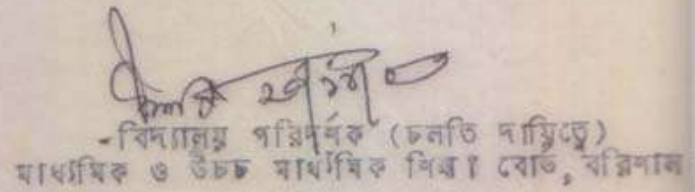 বিদ্যালয় পরিদর্শক (চলতি দায়িত্বে)
মাধ্যমিক ও উচ্চ মাধ্যমিক শিক্ষা বোর্ড, বরিশাল